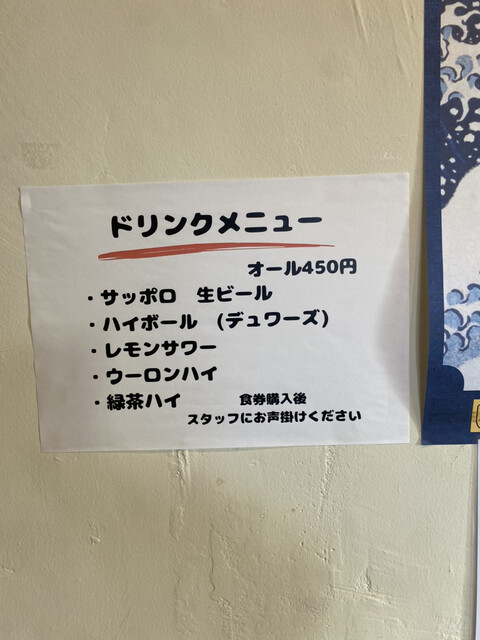 ドリンクメニュー
オール450円
・サッポロ　生ビール
・ハイボール　(デュワーズ)
・レモンサワー
・ウーロンハイ
・緑茶ハイ
食券購入後
スタッフにお声掛けください